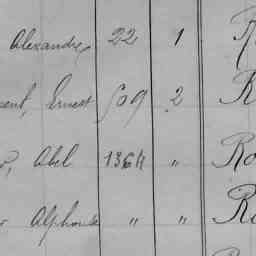 Alexandre 22 1 R
Ernest 509 2 R
Abel 1364 " Ro
Alphonse " " Ro